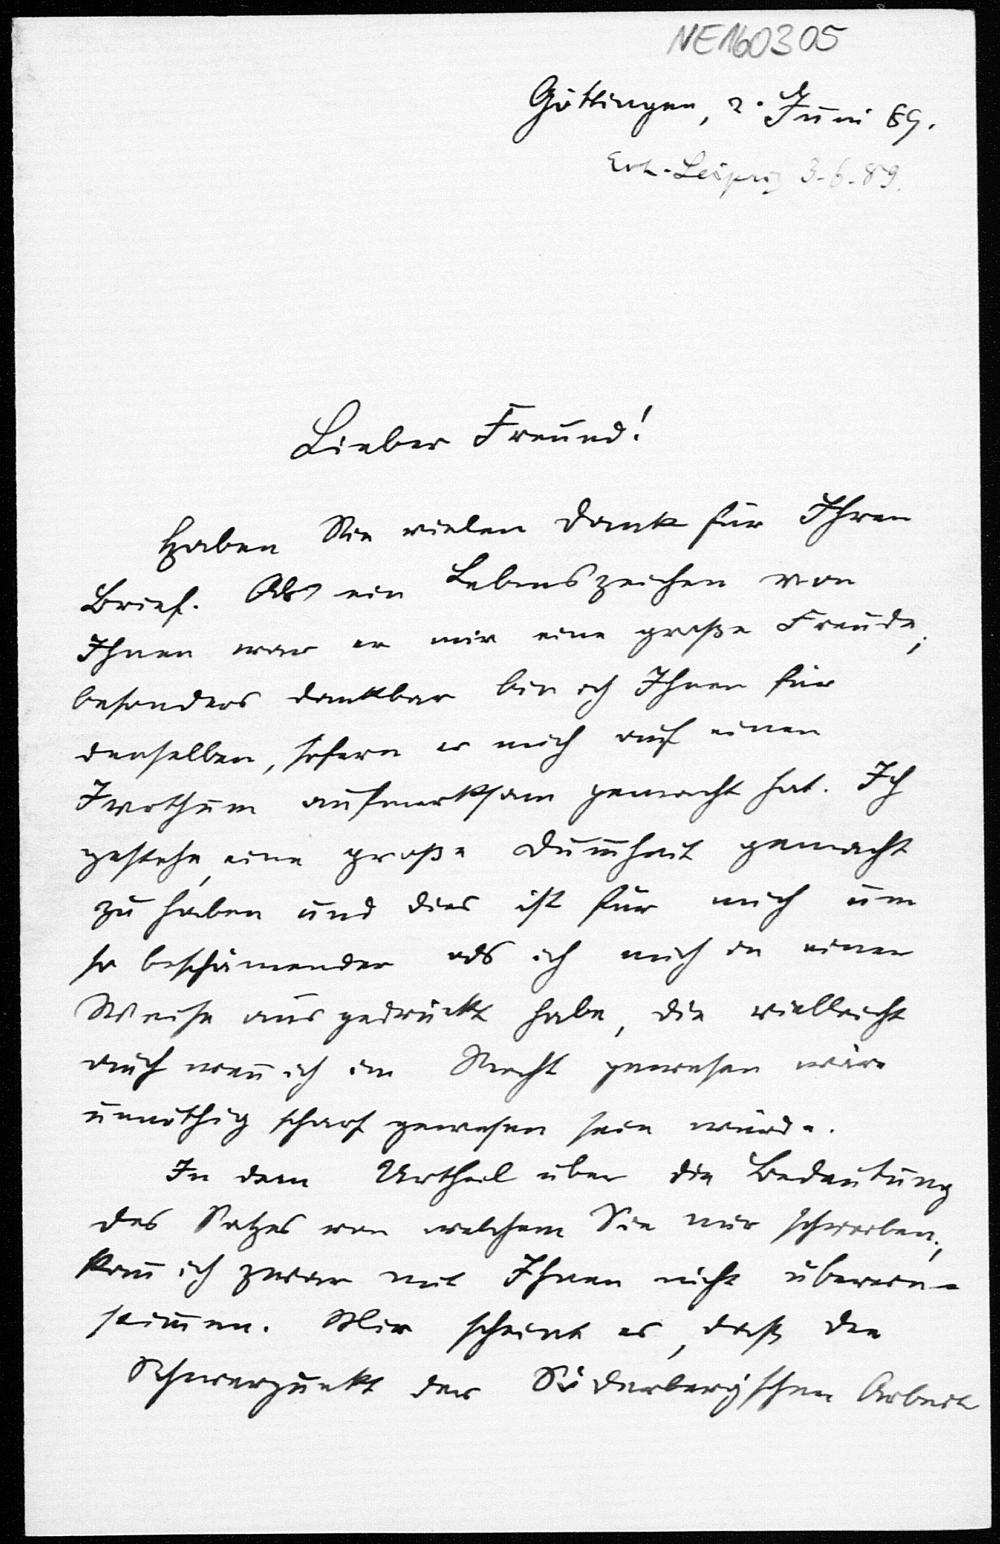 NE160305
Göttingen, 2. Juni 89.
Erh. Leipzig 3.6.89.
Lieber Freund!
Haben Sie vielen Dank für Ihren
Brief. Als ein Lebenszeichen von
Ihnen war er mir eine große Freude;
besonders dankbar bin ich Ihnen für
denselben, sofern er mich auf einen
Irrthum aufmerksam gemacht hat. Ich
gestehe, eine große Dummheit gemacht
zu haben und dies ist für mich um
so beschämender als ich mich in einer
Weise ausgedrückt habe, die vielleicht
auch wenn ich im Recht gewesen wäre
unnöthig scharf gewesen sein würde.
In dem Urtheil über die Bedeutung
des Satzes von welchem Sie mir schreiben,
kann ich zwar mit Ihnen nicht überein-
stimmen. Mir scheint es, daß der
Schwerpunkt der Söderbergschen Arbeit